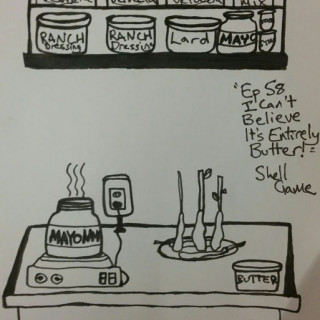 RANCH
DRESSING
RANCH
DRESSING
Lard
MAYO
"Ep 58
I can't
Believe
It's Entirely
Butter!"
Shell
Game
MAYONN
BUTTER